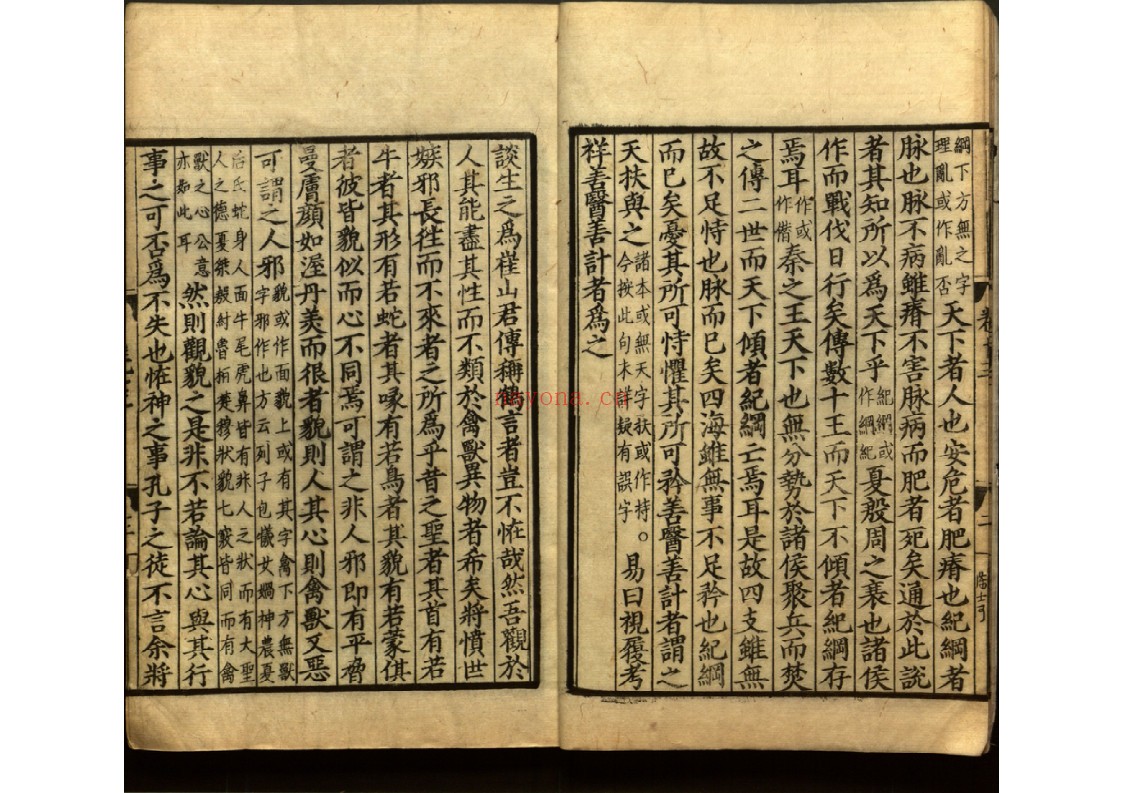 綱下方無之字
理亂或作亂否
天下者人也安危者肥瘠也紀綱者
脉也脉不病雖瘠不害脉病而肥者死矣通於此說
者其知所以爲天下乎
紀綱或
作綱紀
夏殷周之衰也諸侯
作而戰伐日行矣傳數十王而天下不傾者紀綱存
焉耳
作或
作偕
秦之王天下也無分勢於諸侯聚兵而焚
之傳二世而天下傾者紀綱亡焉耳是故四支雖無
故不足恃也脉而已矣四海雖無事不足矜也紀綱
而已矣憂其所可恃懼其所可矜善醫善計者謂之
天扶與之
諸本或無天字扶或作持
今按此句未詳疑有誤字
○易曰視履考
祥善醫善計者爲之
談生之爲崔山君傳稱鶴言者豈不恠哉然吾觀於
人其能盡其性而不類於禽獸異物者希矣將憤世
嫉邪長徃而不來者之所爲乎昔之聖者其首有若
牛者其形有若蛇者其喙有若鳥者其貌有若蒙倛
者彼皆貌似而心不同焉可謂之非人邪即有平脅
曼膚顔如渥丹美而很者貌則人其心則禽獸又惡
可謂之人邪
貌或作面貌上或有其字禽下方無獸
字邪作也方云列子包犧女媧神農夏
后氏蛇身人面牛尾虎鼻皆有非人之狀而有大聖
人之德夏桀殷紂魯桓楚穆狀貌七竅皆同而有禽
獸之心公意
亦如此耳
然則觀貌之是非不若論其心與其行
事之可否爲不失也恠神之事孔子之徒不言余將
nayona.cn